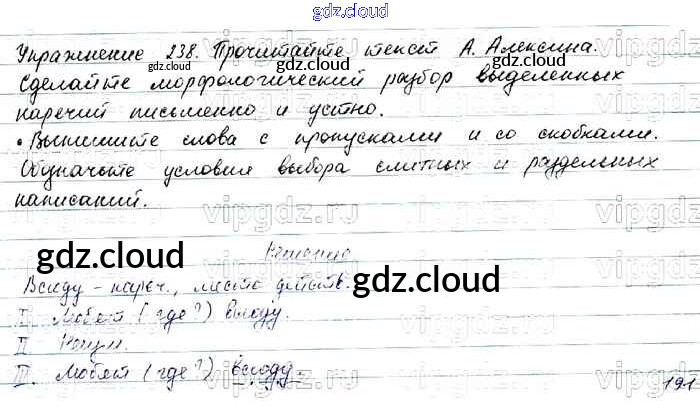 gdz.cloud
Упражнение 238. Прочитайте текст А. Алексина.
gdz.cloud gdz.cloud gdz.cloud
Сделайте морфологический разбор выделенных
наречий письменно и устно.
• Выпишите слова с пропусками и со скобками.
Обозначьте условия выбора слитных и раздельных
написаний.
vipgdz.ru
gdz.cloud gdz.cloud
Решение
Всюду – нареч., место действ.
I. Любят (где?) всюду.
II Неизм.
III. Любят (где?) всюду.
191